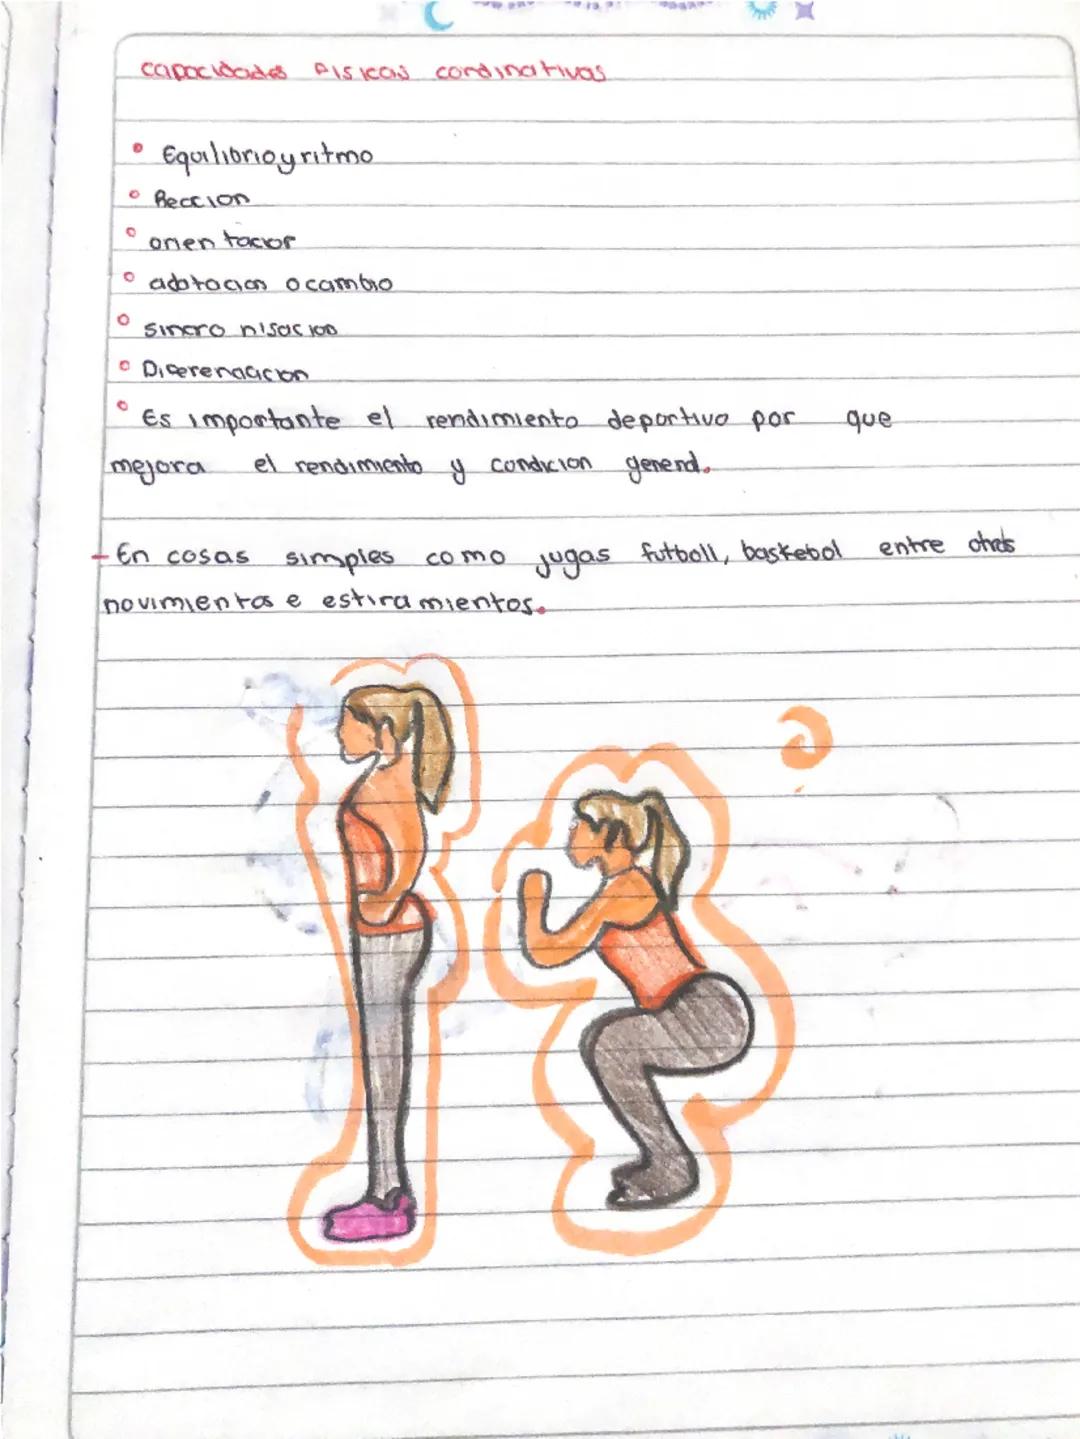 capacidades Fisicas cordinativas
Equilibrio y ritmo
Reccion
orientacior
adatacion o cambio
sincro nisacion
Diferenciacion
Es importante el rendimiento deportivo por que
mejora el rendimiento y condicion generd.
- En cosas simples como jugas futboll, baskebol entre otros
novimientos e estiramientos.